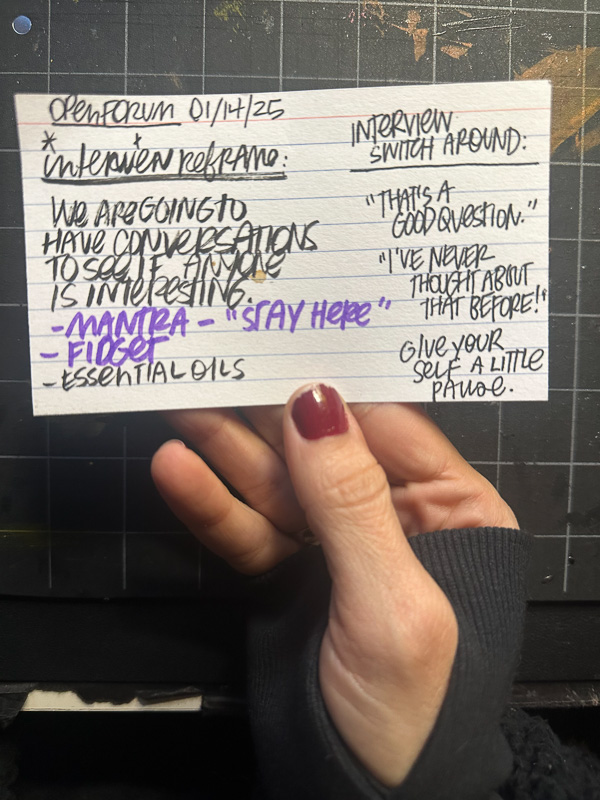 OPENFORUM 01/14/25
* interview reframe:
WE ARE GOING TO
HAVE CONVERSATIONS
TO SEE IF ANYONE
IS INTERESTING.
- MANTRA - "STAY HERE"
- FIDGET
- ESSENTIAL OILS
INTERVIEW
SWITCH AROUND:
"THAT'S A
GOOD QUESTION."
"I'VE NEVER
THOUGHT ABOUT
THAT BEFORE!"
GIVE YOUR
SELF A LITTLE
PAUSE.